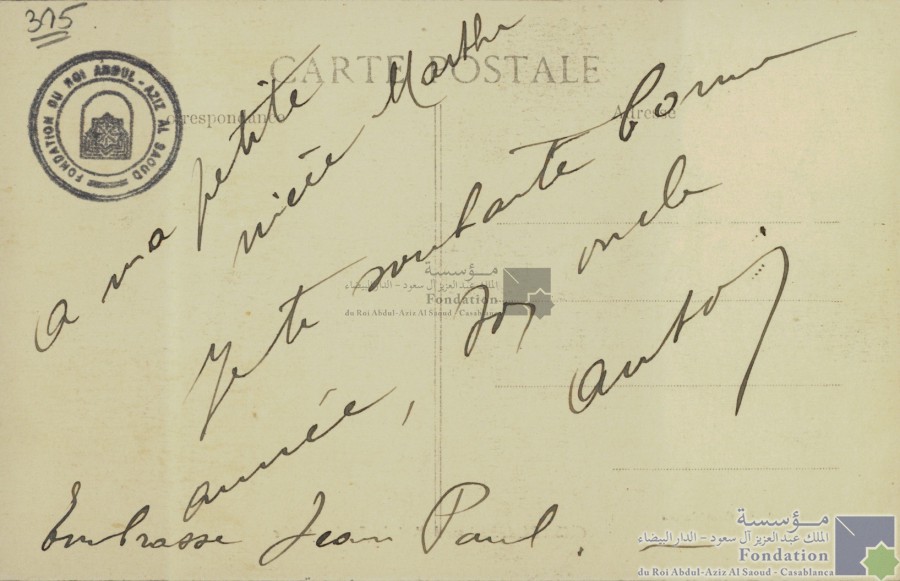 375
CARTE POSTALE
Correspondance
Adresse
FONDATION DU ROI ABDUL-AZIZ AL SAOUD
a ma petite
nièce Marthe
Je te souhaite bonne
année, ton oncle
Anto
Embrasse Jean Paul.
مؤسسة
الملك عبد العزيز آل سعود - الدار البيضاء
Fondation
du Roi Abdul-Aziz Al Saoud - Casablanca
مؤسسة
الملك عبد العزيز آل سعود - الدار البيضاء
Fondation
du Roi Abdul-Aziz Al Saoud - Casablanca